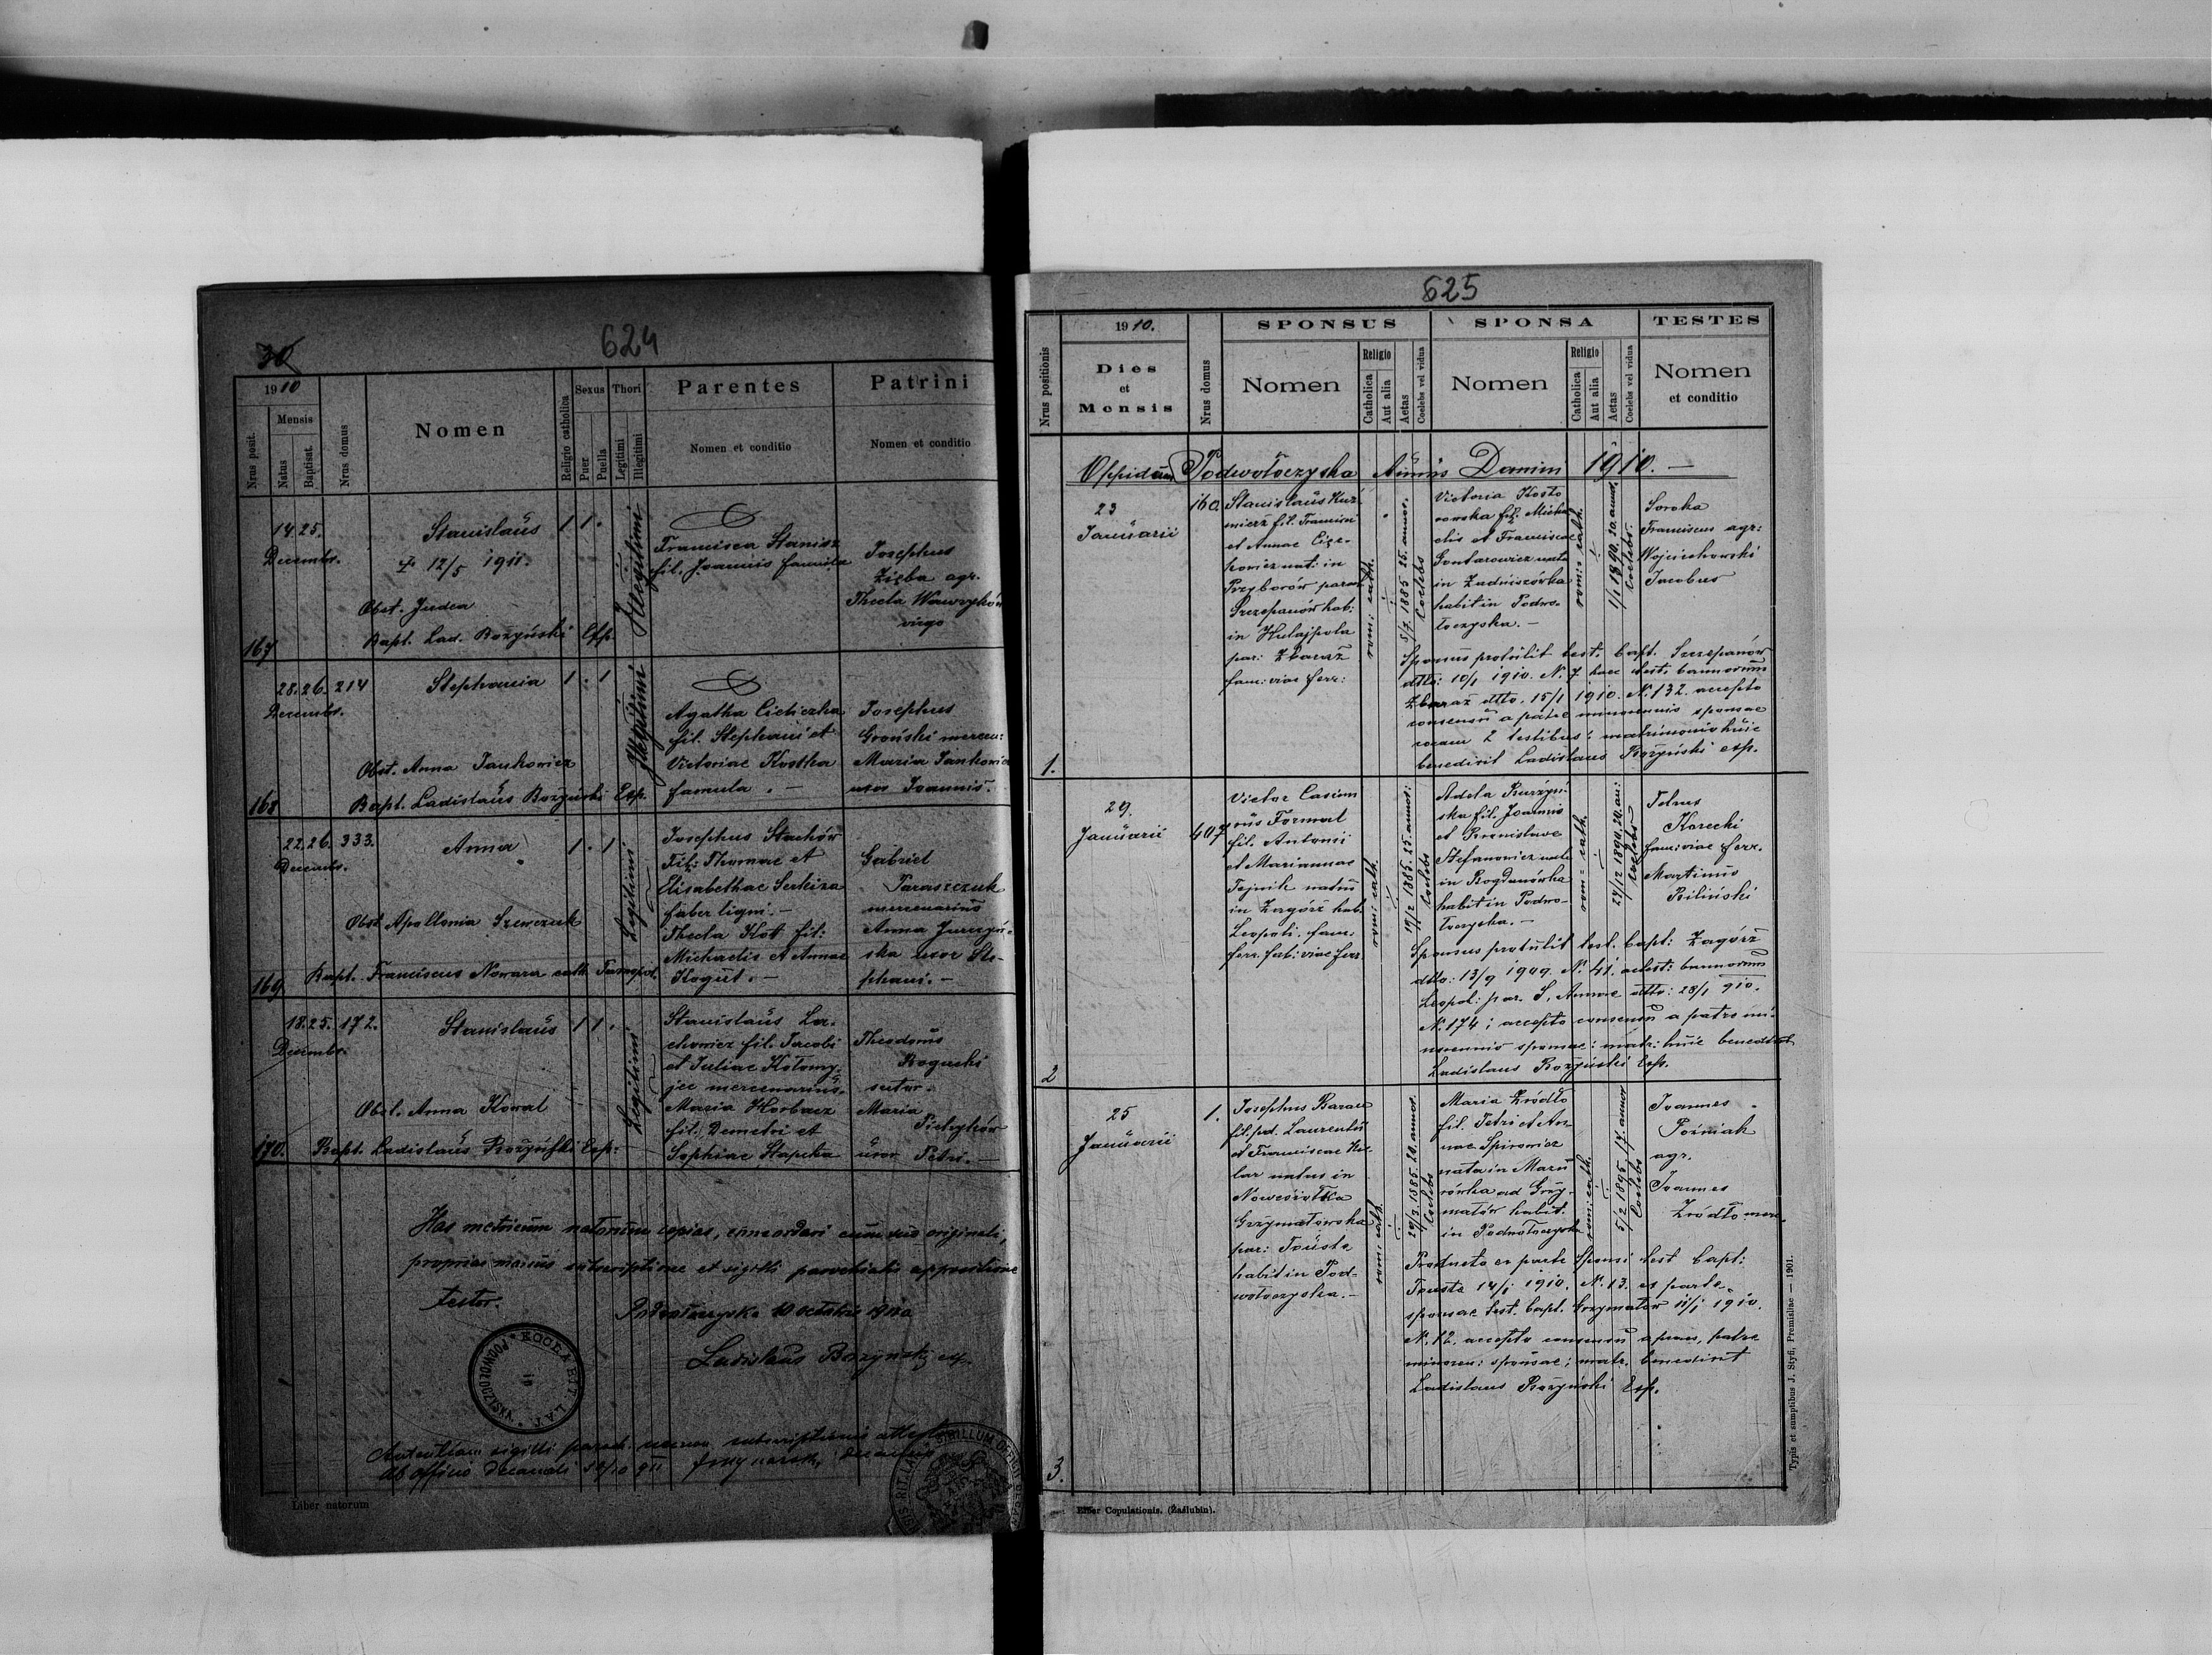 30
624
1910
Nrus posit.
Mensis
Natus
Baptisat.
Nrus domus
Nomen
Religio catholica
Sexus
Puer
Puella
Thori
Legitimi
Illegitimi
Parentes
Nomen et conditio
Patrini
Nomen et conditio
167
14. 25.
Decembr.
Stanislaus
12/5 1911.
Obst. Judea
Bapt. Lad. Bożyński Exp.
1 1 .
Illegitimi
Francisca Stanisz
fil. Joannis famula
Josephus
Zięba agr.
Thecla Wawryków
virgo
168
28. 26. 214
Decembr.
Stephania
1 . 1
Obst. Anna Jankowicz
Bapt. Ladislaus Bożyński Exp.
Illegitimi
Agatha
fil. Stephani et
Victoriae Kostka
famula . —
Josephus
Groński mercen:
Maria Jankowicz
uxor Joannis.
169
22. 26. 333.
Decembr.
Anna
1 . 1
Obst. Apollonia Szewczuk
Bapt. Franciscus Nowara cath. Tarnopol.
Legitimi
Josephus Stachów
Fil: Thomae et
Elisabethae
faber ligni. —
Thecla Kott fil:
Michaelis et Annae
Kogut. —
Gabriel
Paraszczuk
mercenarius
Anna Jurczyń-
ska uxor Ste-
phani. —
170.
18. 25. 172.
Decembr.
Stanislaus
1 1 .
Obst. Anna Kowal
Bapt. Ladislaus Bożyński Exp:
Legitimi
Stanislaus La-
chowicz fil. Jacobi
et Juliae Kołomy-
jec mercenarius.
Maria Horbacz
fil. Demetri et
Sophiae Słapcka
Theodorus
Bogucki
sutor.
Maria
Pietryków
uxor Petri. —
Has metricum natorum copias, concordari cum suo originali,
propriae manus subscriptione et sigilli parochialis appositione
testor.
Podwołoczyska 10 octobris 1910
Ladislaus Bożyński exp.
ECCL. RIT. LAT.
PODWOŁOCZYSKA
ab officio Decanali
Liber natorum
625
Nrus positionis
1910.
Dies
et
Mensis
Nrus domus
SPONSUS
Nomen
Religio
Catholica
Aut alia
Aetas
Coelebs vel vidua
SPONSA
Nomen
Religio
Catholica
Aut alia
Aetas
Coelebs vel vidua
TESTES
Nomen
et conditio
Oppidum Podwołoczyska Annus Domini 1910. —
1.
23
Januarii
160
Stanislaus Kuź-
mierz fil. Francisci
et Annae Cize-
kowicz nat: in
Przyborów paroch.
Szczepanów hab:
in Hulajpola
par: Zbaraż
fam: viae ferr:
rom: cath.
5/7 1885 25. annor.
Coelebs
Victoria Kosto
rowska fil. Micha
elis et Franciscae
Gontarowicz nata
in Zadniszówka
habit in Podwo-
łoczyska. —
rom: cath.
1/1 1890. 20. annor.
Coelebs.
Soroka
Franciscus agr:
Wojciechowski
Jacobus
Sponsus protulit test. bapt. Szczepanów
dtto: 10/1 1910. N. 7 haec test. bannorum
Zbaraż dtto, 15/1 1910. N. 132. accepto
consensu a patre minorennis sponsae
coram 2 testibus; matrimonio huic
benedixit Ladislaus Bożyński exp.
2
29.
Januarii
407
Victor Casim
irus Formal
fil. Antonii
et Mariannae
Fejnik natus
in Zagórz hab.
Leopoli. fam.
ferr. fab: viae ferr.
rom: cath.
19/2 1885. 25. annor:
Coelebs
Adela Burzyń-
ska fil. Joannis
et Bronislavae
Stefanowicz nata
in Bogdanówka
habit in Podwo-
łoczyska. —
rom: cath.
24/12 1890. 20. an:
Coelebs
Petrus
Korecki
fam: viae ferr.
Martinus
Biliński
Sponsus protulit test. bapt: Zagórz
dtto: 13/9 1909 N. 41. ac test: bannorum
Leopol: par. S. Annae dtto: 28/1 910.
N. 174; accepto consensu a patre mi-
norennis sponsae; matr: huic benedixit
Ladislaus Bożyński Exp.
3.
25
Januarii
1.
Josephus Baran
fil. pd. Laurentii
et Franciscae Ku-
lar natus in
Nowosiołka
Grzymałowska
par: Touste
habit in Pod-
wołoczyska. —
rom: cath.
29/3. 1885. 20. annor.
Coelebs
Maria Źródło
fil. Petri et An-
nae Spirowicz
nata in Mazu
rówka ad Grzy-
małów habit.
in Podwołoczyska
rom: cath.
5/2 1895. 17. annor
Coelebs
Joannes
Poźniak
agr.
Joannes
Źródło merc.
Producto ex parte sponsi test bapt:
Touste 14/1 1910. N. 13. ex parte
sponsae test. bapt. Grzymałów 11/1 1910.
N. 12 accepto consensu a praes. patre
minoren: sponsae; matr. benedixit
Ladislaus Bożyński Exp.
Liber Copulationis. (Zaślubin).
Typis et sumptibus J. Styfi, Premisliae — 1901.